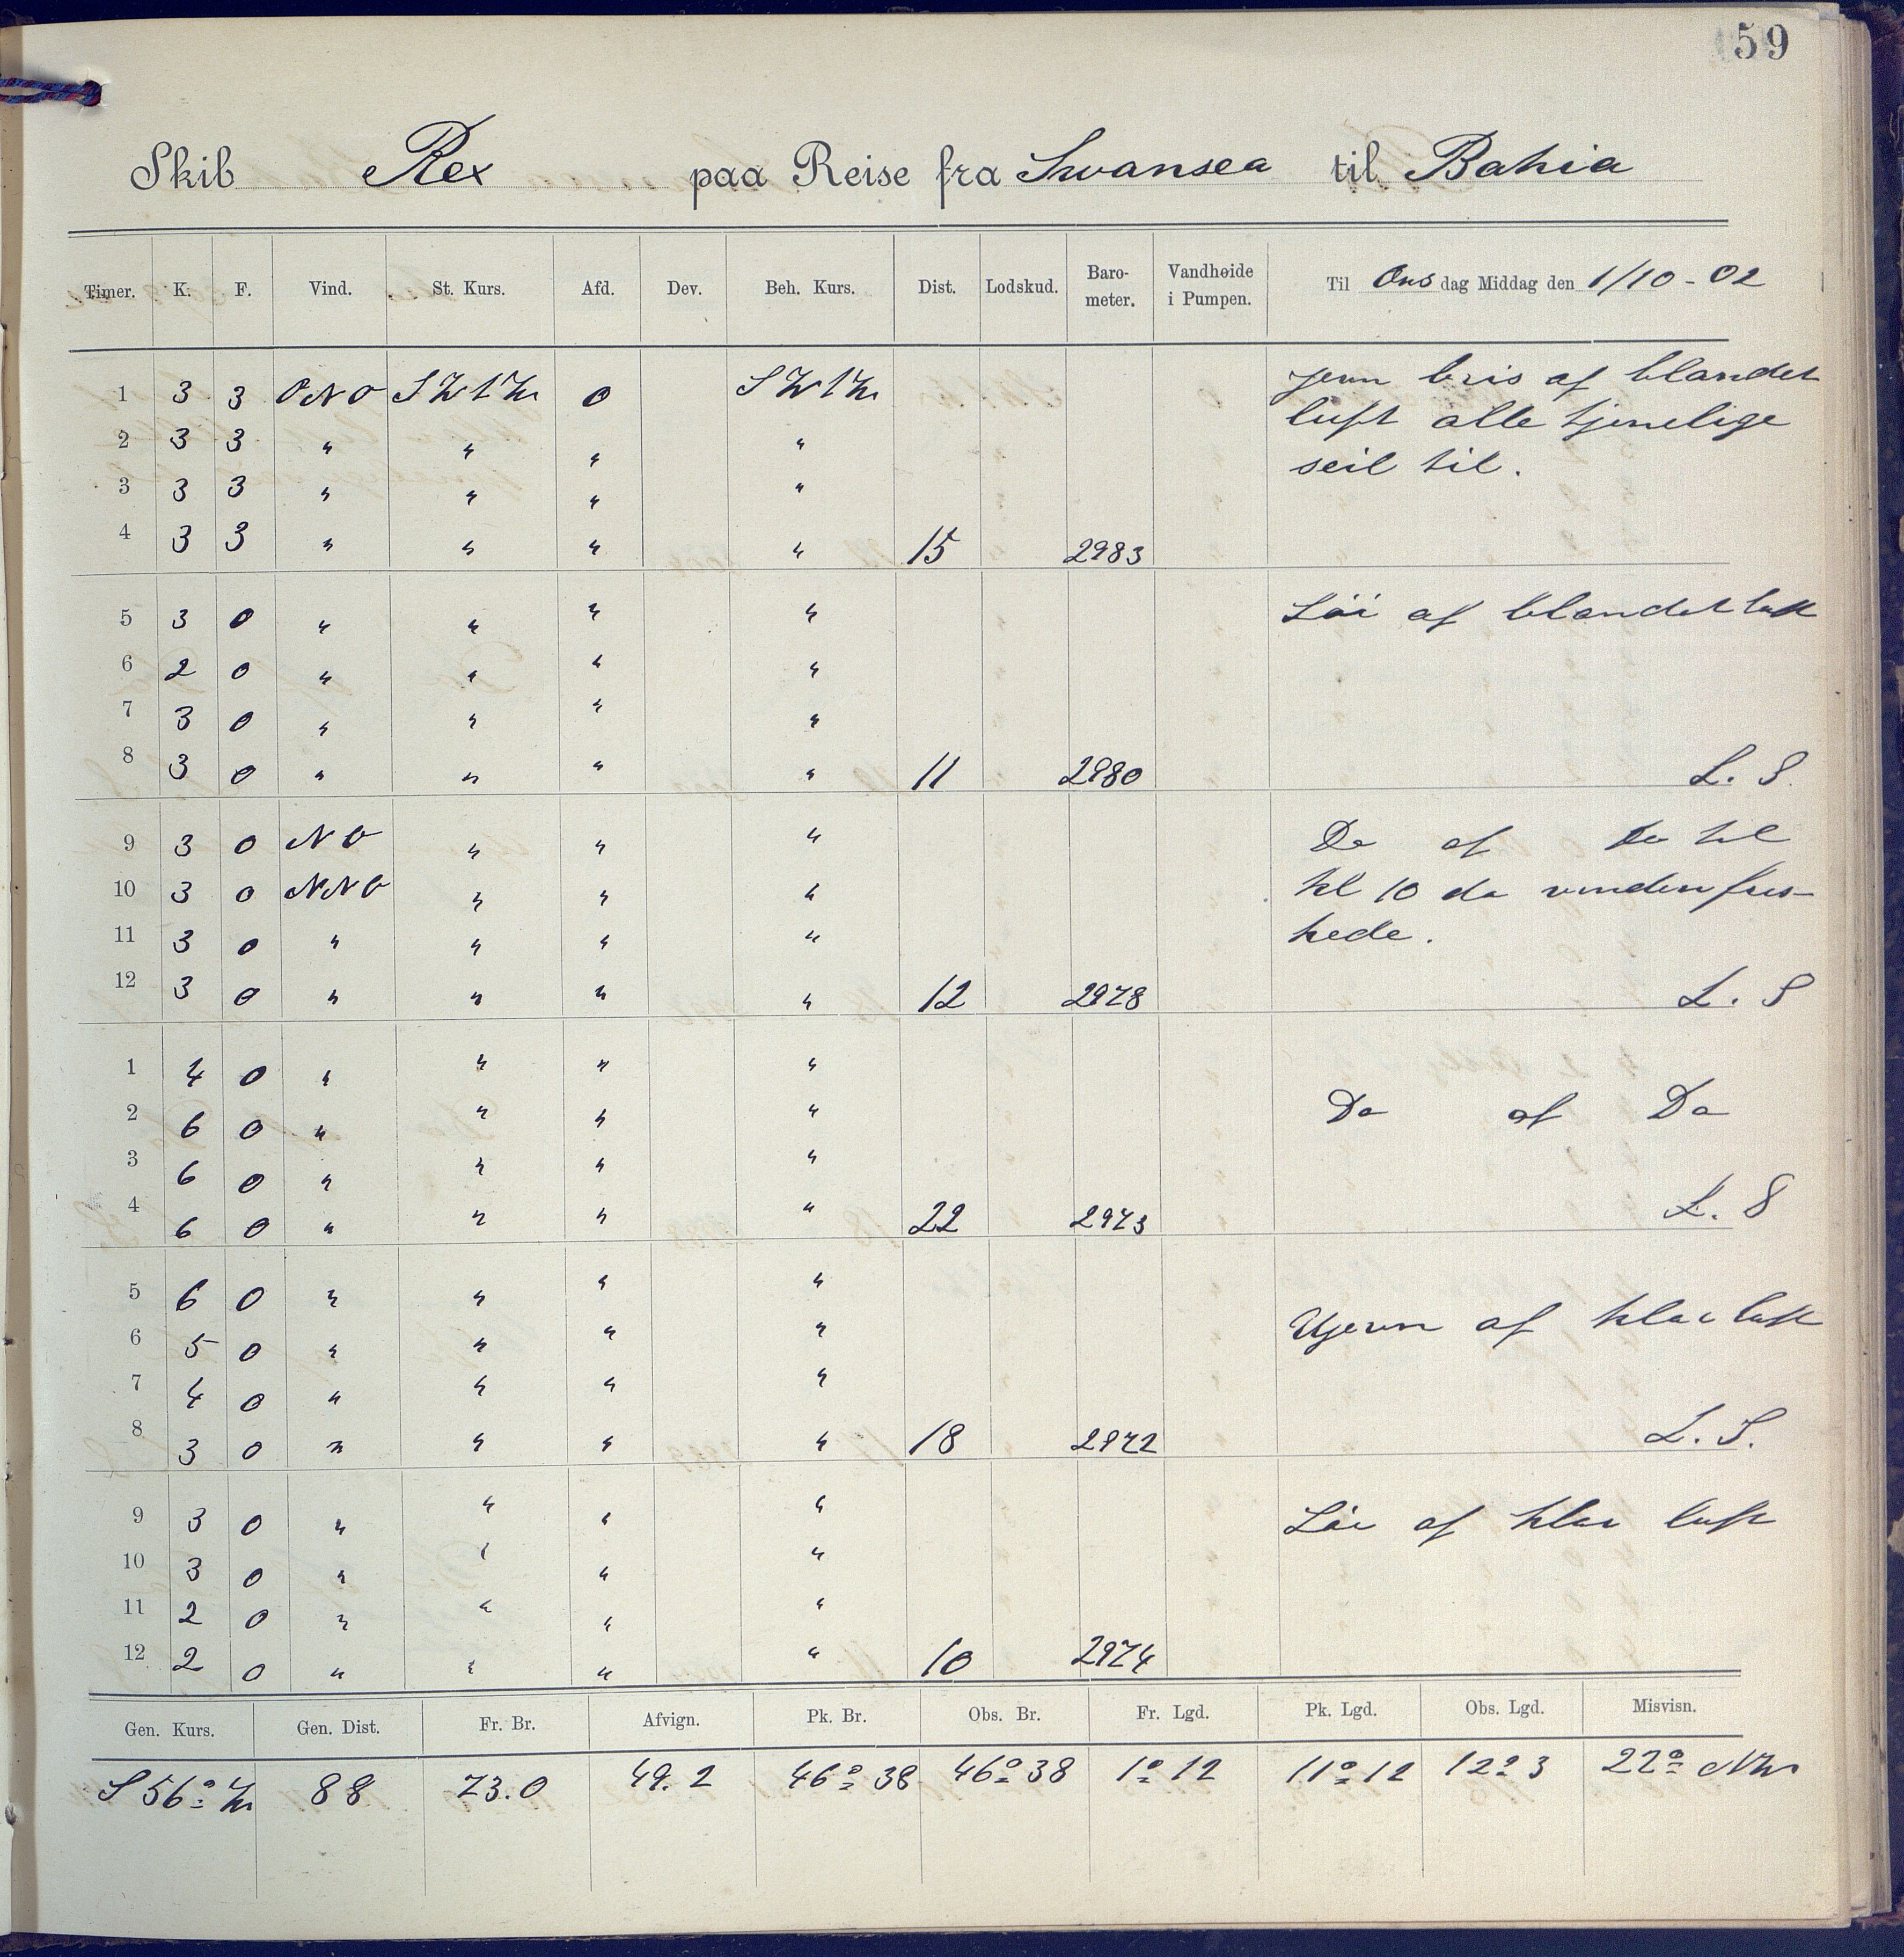 59
Skib Rex paa Reise fra Swansea til Bahia
Timer. K. F. Vind. St. Kurs. Afd. Dev. Beh. Kurs. Dist. Lodskud. Baro-meter. Vandhøide i Pumpen. Til Onsdag Middag den 1/10-02
1 3 3 ONO SWtW 0 SWtW jevn bris af blandet
luft alle tjenelige
2 3 3 " " " "
seil til.
3 3 3 " " " "
4 3 3 " " " " 15 2983
5 3 0 " " " " Løi af blandet luft
6 2 0 " " " "
7 3 0 " " " "
8 3 0 " " " " 11 2980 L. S.
9 3 0 NO " " " Do af Do til
10 3 0 NNO " " " kl 10 da vinden fris-
11 3 0 " " " " kede.
12 3 0 " " " " 12 2978 L. S
1 4 0 " " " "
2 6 0 " " " " Do af Do
3 6 0 " " " "
4 6 0 " " " " 22 2973 L. S
5 6 0 " " " "
Ujevn af klar luft
6 5 0 " " " "
7 4 0 " " " "
8 3 0 " " " " 18 2972 L. S.
9 3 0 " " " " Løi af klar luft
10 3 0 " " " "
11 2 0 " " " "
12 2 0 " " " " 10 2974
Gen. Kurs. Gen. Dist. Fr. Br. Afvign. Pk. Br. Obs. Br. Fr. Lgd. Pk. Lgd. Obs. Lgd. Misvisn.
S 56° W 88 73.0 49.2 46° 38 46° 38 1° 12 11° 12 12° 3 22° NW